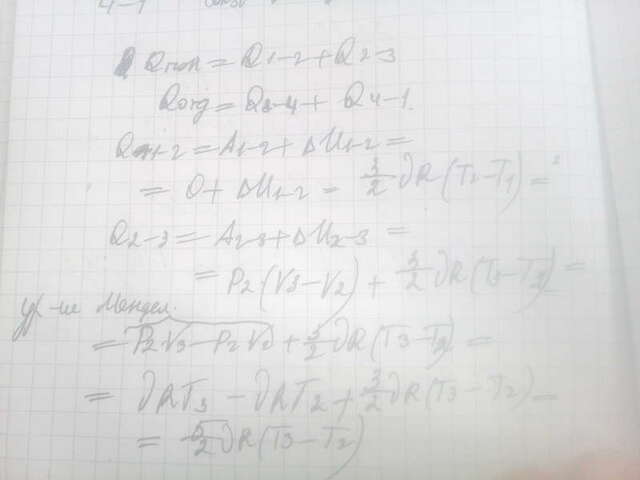 Qпол = Q1-2 + Q2-3
Qотд = Q3-4 + Q4-1.
Q1-2 = A1-2 + ΔU1-2 =
= 0 + ΔU1-2 = 3/2 νR(T2-T1) =
Q2-3 = A2-3 + ΔU2-3 =
= P2(V3-V2) + 3/2 νR(T3-T2) =
ур-ие Мендел.
= P2V3 - P2V2 + 3/2 νR(T3-T2) =
= νRT3 - νRT2 + 3/2 νR(T3-T2) =
= 5/2 νR(T3-T2)